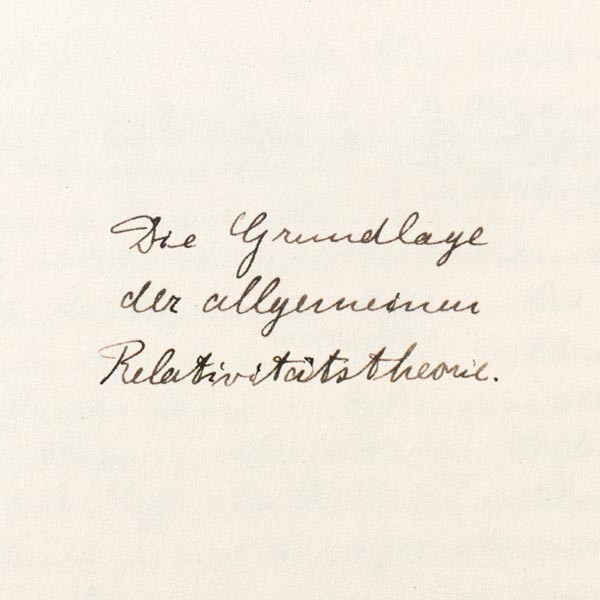 Die Grundlage
der allgemeinen
Relativitätstheorie.